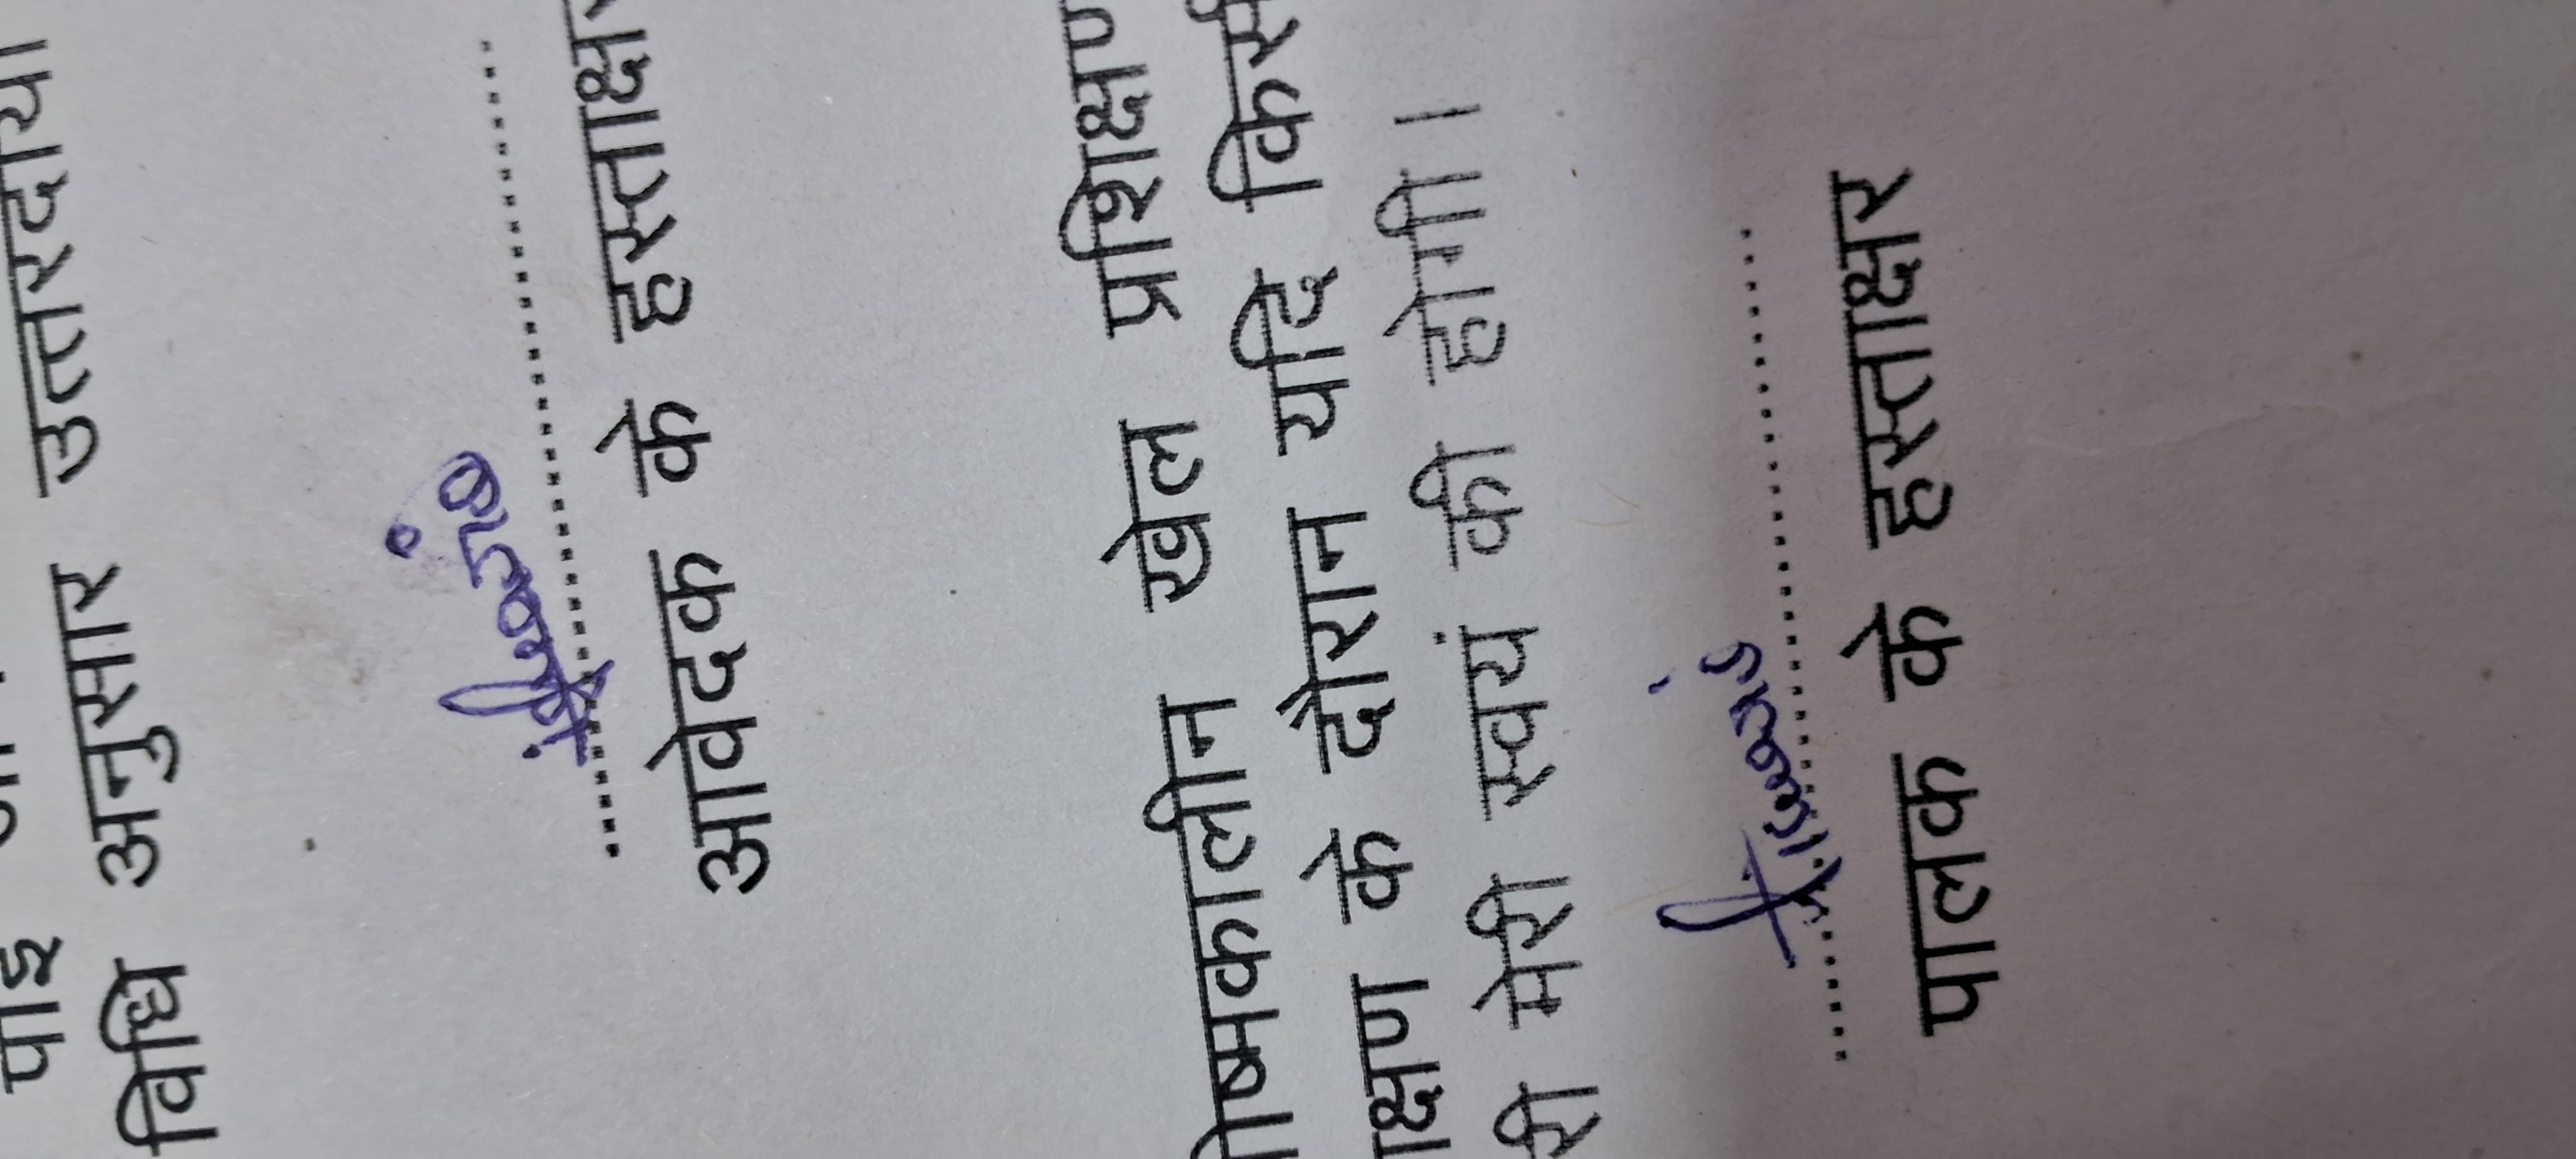 पाइ
विधि अनुसार उत्तरदायी
आवेदक के हस्ताक्षर
ग्रीष्मकालीन खेल प्रशिक्षण
क्षण के दौरान यदि किसी
री मेरी स्वयं की होगी।
पालक के हस्ताक्षर